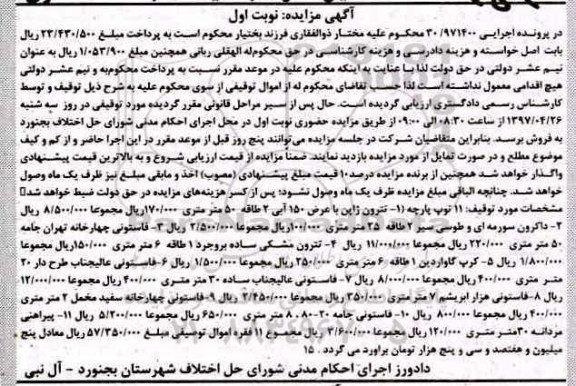 آگهی مزایده: نوبت اول
در پرونده اجرایی ۳۰/۹۷۱۴۰۰ محکوم علیه مختار ذوالفقاری فرزند بختیار محکوم است به پرداخت مبلغ ۲۳/۴۳۰/۵۰۰ ریال
بابت اصل خواسته و هزینه دادرسی و هزینه کارشناسی در حق محکوم‌له الهقلی ربانی همچنین مبلغ ۱/۰۵۳/۹۰۰ ریال به عنوان
نیم عشر دولتی در حق دولت لذا با عنایت به اینکه محکوم علیه در موعد مقرر نسبت به پرداخت محکوم‌به و نیم عشر دولتی
هیچ اقدامی معمول نداشته است لذا حسب تقاضای محکوم له از اموال توقیفی از سوی محکوم علیه به شرح ذیل توقیف و توسط
کارشناس رسمی دادگستری ارزیابی گردیده است. حال پس از سیر مراحل قانونی مقرر گردیده مورد توقیفی در روز سه شنبه
۱۳۹۷/۰۴/۲۶ از ساعت ۰۸:۳۰ الی ۰۹:۰۰ از طریق مزایده حضوری نوبت اول در محل اجرای احکام مدنی شورای حل اختلاف بجنورد
به فروش برسد. بنابراین متقاضیان شرکت در جلسه مزایده می‌توانند پنج روز قبل از موعد مقرر در این اجرا حاضر و از کم و کیف
موضوع مطلع و در صورت تمایل از مورد مزایده بازدید نمایند. ضمناً مزایده از قیمت ارزیابی شروع و به بالاترین قیمت پیشنهادی
واگذار خواهد شد همچنین از برنده مزایده درصد۱۰ قیمت مبلغ پیشنهادی (مصوب) اخذ و مابقی مبلغ نیز ظرف یک ماه وصول
خواهد شد. چنانچه الباقی مبلغ مزایده ظرف یک ماه وصول نشود؛ پس از کسر هزینه‌های مزایده در حق دولت ضبط خواهد شد
مشخصات مورد توقیف: ۱۱ توپ پارچه (۱- تترون ژاپن با عرض ۱۵۰ آبی ۲ طاقه ۵۰ متر متری ۱۷۰/۰۰۰ریال مجموعا ۸/۵۰۰/۰۰۰ ریال
۲- داکرون سورمه ای و طوسی سیر ۲طاقه ۲۵ متر متری ۱۰۰/۰۰۰ریال مجموعا ۲/۵۰۰/۰۰۰ ریال ۳- فاستونی چهارخانه تهران جامه
۵۰ متر متری ۲۲۰/۰۰۰ ریال مجموعا ۱۱/۰۰۰/۰۰۰ ریال ۴- تترون مشکی ساده بروجرد ۱ طاقه ۶ متر متری ۱۵۰/۰۰۰ریال مجموعا
۱/۸۰۰/۰۰۰ ریال ۵- کرپ گاواردین ۱ طاقه ۶ متر متری ۲۵۰/۰۰۰ ریال مجموعا ۱/۵۰۰/۰۰۰ ریال ۶- فاستونی عالیجناب طرح دار ۲۰
متر متری ۴۰۰/۰۰۰ ریال مجموعا ۸/۰۰۰/۰۰۰ ریال ۷- فاستونی عالیجناب ساده ۳۰ متر متری ۴۰۰/۰۰۰ ریال مجموعا ۱۲/۰۰۰/۰۰۰
ریال ۸-فاستونی هزار ابریشم ۷ متر متری ۳۵۰/۰۰۰ ریال مجموعا ۲/۴۵۰/۰۰۰ ریال ۹-فاستونی چهارخانه سفید مخمل ۲ متر متری
۴۰۰/۰۰۰ ریال مجموعا ۸۰۰/۰۰۰ ریال ۱۰- فاستونی جامه ۲۰-۸۰ ۸ متر متری ۶۵۰/۰۰۰ ریال مجموعا ۵/۲۰۰/۰۰۰ ریال ۱۱- پیراهنی
مردانه ۳۰متر متری ۱۲۰/۰۰۰ ریال مجموعا ۳/۶۰۰/۰۰۰ ریال مجموع ۱۱ فقره اموال توصیفی مبلغ ۵۷/۳۵۰/۰۰۰ ریال معادل پنج
میلیون و هفتصد و سی و پنج هزار تومان براورد می گردد . ۱۵
دادورز اجرای احکام مدنی شورای حل اختلاف شهرستان بجنورد - آل نبی